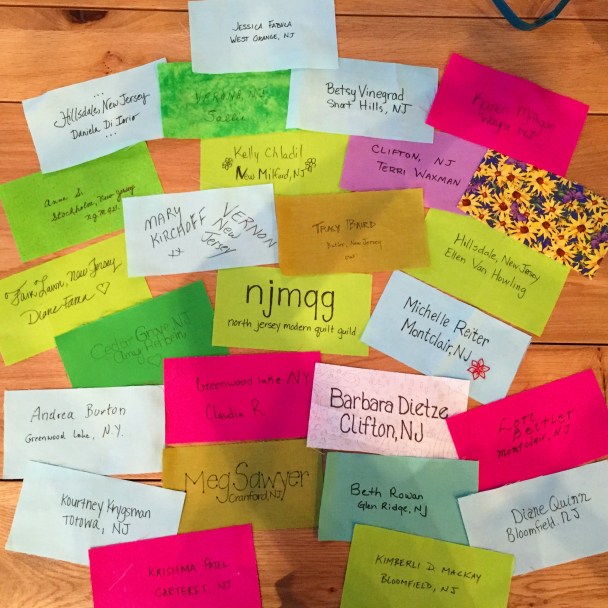 JESSICA FABULA
WEST ORANGE, NJ
Hillsdale, New Jersey
Daniela Di Iorio
Betsy Vinegrad
Short Hills, NJ
Karen
NJ
Kelly Chladil
New Milford, NJ
CLIFTON, NJ
TERRI WAXMAN
Anna
Stockholm, New Jersey
MARY
KIRCHOFF
XX
VERNON
New
Jersey
TRACY BAIRD
Butler, New Jersey
Hillsdale, New Jersey
Ellen Van Howling
Fair Lawn, New Jersey
Diane Fama
njmqg
north jersey modern quilt guild
Michelle Reiter
Montclair, NJ
Cedar Grove NJ
Greenwood Lake NY
Claudia R.
Andrea Burton
Greenwood Lake, N.Y.
Barbara Dietze
Clifton, NJ
Montclair, NJ
Meg Sawyer
Cranford, NJ
Kourtney Krysman
TOTOWA, NJ
Beth Rowan
Glen Ridge, NJ
Diane Quinn
Bloomfield, NJ
KRISHMA PATEL
NJ
KIMBERLI D MACKAY
BLOOMFIELD, NJ